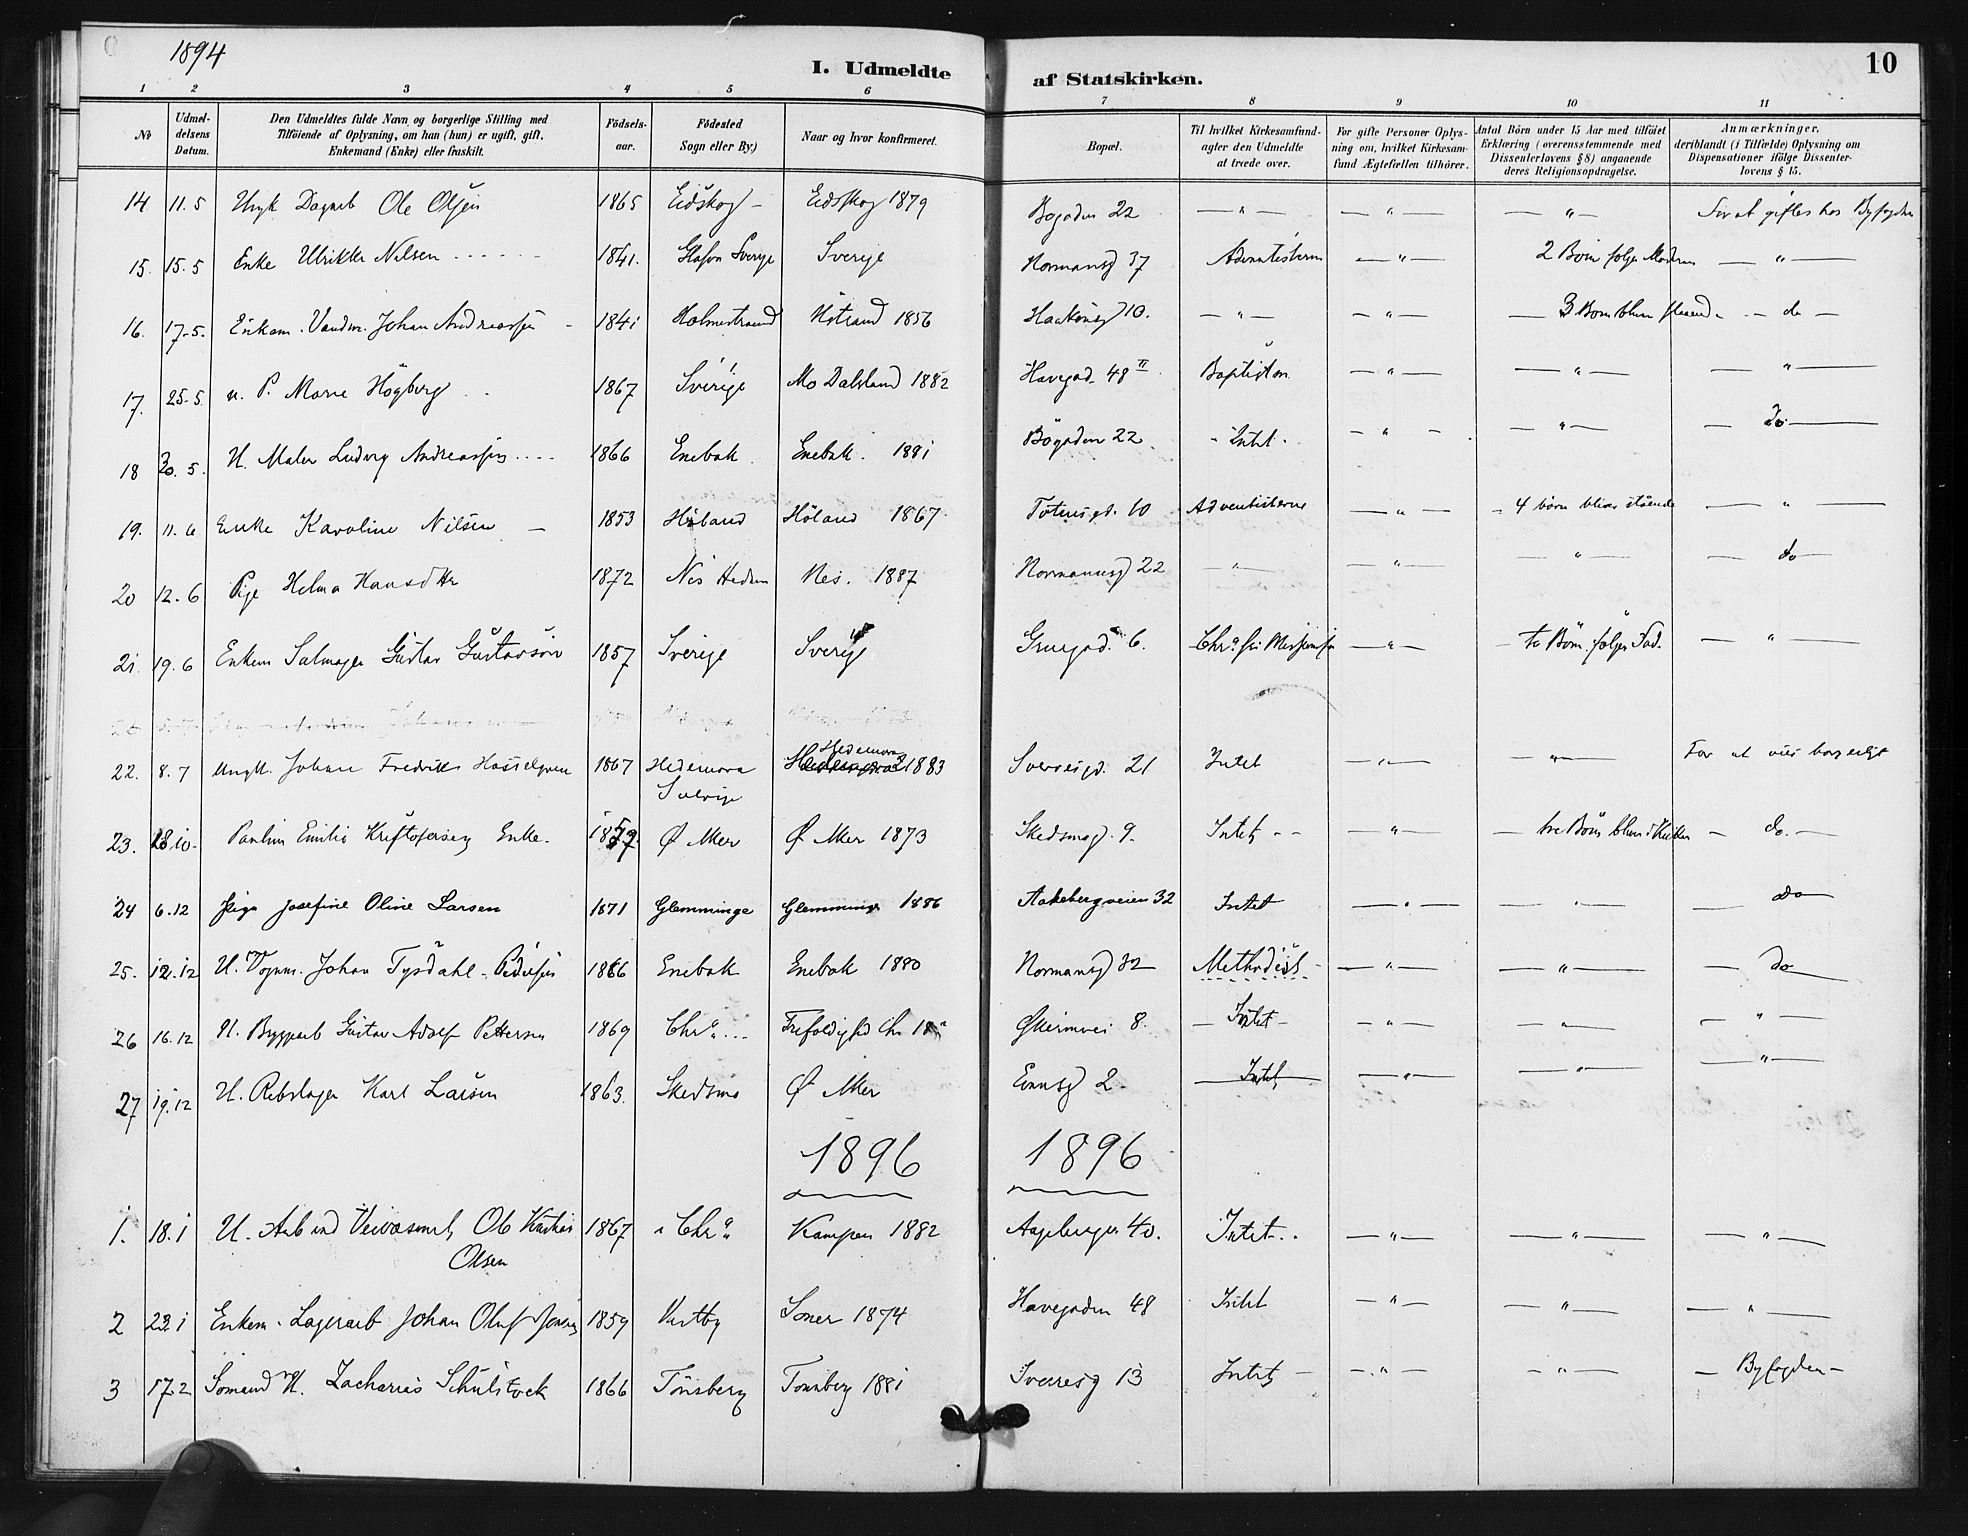 1894
I. Udmeldte af Statskirken. 10
1 2 3 4 5 6 7 8 9 10 11
No
Udmel-
delsens
Datum.
Den Udmeldtes fulde Navn og borgerlige Stilling med
Tilföiende af Oplysning, om han (hun) er ugift, gift,
Enkemand (Enke) eller fraskilt.
Födsels-
aar.
Födested
Sogn eller By.)
Naar og hvor konfirmeret.
Bopæl.
Til hvilket Kirkesamfund-
agter den Udmeldte
at træde over.
For gifte Personer Oplys-
ning om, hvilket Kirkesam-
fund Ægtefællen tilhörer.
Antal Börn under 15 Aar med tilföiet
Erklæring (overensstemmende med
Dissenterlovens § 8) angaaende
deres Religionsopdragelse.
Anmærkninger,
deriblandt (i Tilfælde) Oplysning om
Dispensationer ifölge Dissenter-
lovens § 15.
14 11.5 Ole Olsen 1865 Eidskog – Eidskog 1879 Bögaden 22 – " – – " – – " – For at giftes hos Byfogden
15. 15.5 Enke Ulrikke Nilsen 1841. Sverge Sverige Normansg 37 Adventisterne – " – 2 Börn følger Moderen – " –
16. 17.5. Enkem. Vandm. Johan Andreassen 1841 Holmestrand H.strand 1856 Haakonsg 10. – " – – " – 3 Börn do –
17. 25.5. u. P. Marie Högberg 1867 Sverige Mo Dalsland 1882 Havegad. 48 II – " – – " – – " –
18 30.5. U. Maler Ludvig Andreassen 1866 Enebak Enebak. 1881 Bögaden 22 Intet. – " – – " – – Do. –
19. 11.6 Enke Karoline Nilsen – 1853 Höland Höland 1867 Totensgd. 10 Adventisterne – " – 4 börn bliver stående – " –
20 12.6 Pige Helma Hansdtr 1872 Nes Hedem Nes. 1887 Normannsg 22 – " – – " – – " – – do –
21. 19.6 Enkem Salmager Gustav Gustavson 1857 Sverige Sverige Gruegad. 6. – " – to Börn følger Fad. – " –
22. 8.7 Ungk. Johan Fredrik Hasselgren 1867 Hedemora Hedemora 1883 Sverresgd. 21 Intet – " – – " – For at vies borgerligt
23. 18.10. Pauline Emilie Kristofersen Enke. Ø Aker Ø Aker 1873 Skedsmog. 9. Intet – – – " – tre Börn – do. –
24 6.12 Pige Josefine Oline Larsen 1871 Glemminge Glemminge 1886 Aakebergveien 32 Intet – " – – " – do
25. 12.12 U. Vognm. Johan Tysdahl Pedersen 1866 Enebak Enebak 1880 Normansg 32 Methodist – " – – " – – do
26 16.12 U. Gustav Adolf Pettersen 1869 Chra Trefoldighed 8. – Intet – – " – – " – – " –
27 19.12 U. Rebslager Karl Larsen 1863. Skedsmo Ø Aker 2. Intet – " – – " – – " –
1896 1896
1. 18.1 U. Ole
Olsen 1867 Chra Kampen 1882 40. Intet.. – " – – " – – " –
2 22.1 Enkem. Lagerarb Johan Oluf 1859 Vestby Soner 1874 Havegaden 48 Intet – " – – " – – " –
3 17.2 Sömand U. Zacharias Schulstock 1866 Tönsberg Tönsberg 1881 Sverresg 13 Intet – – " – – " – – Byfogden –